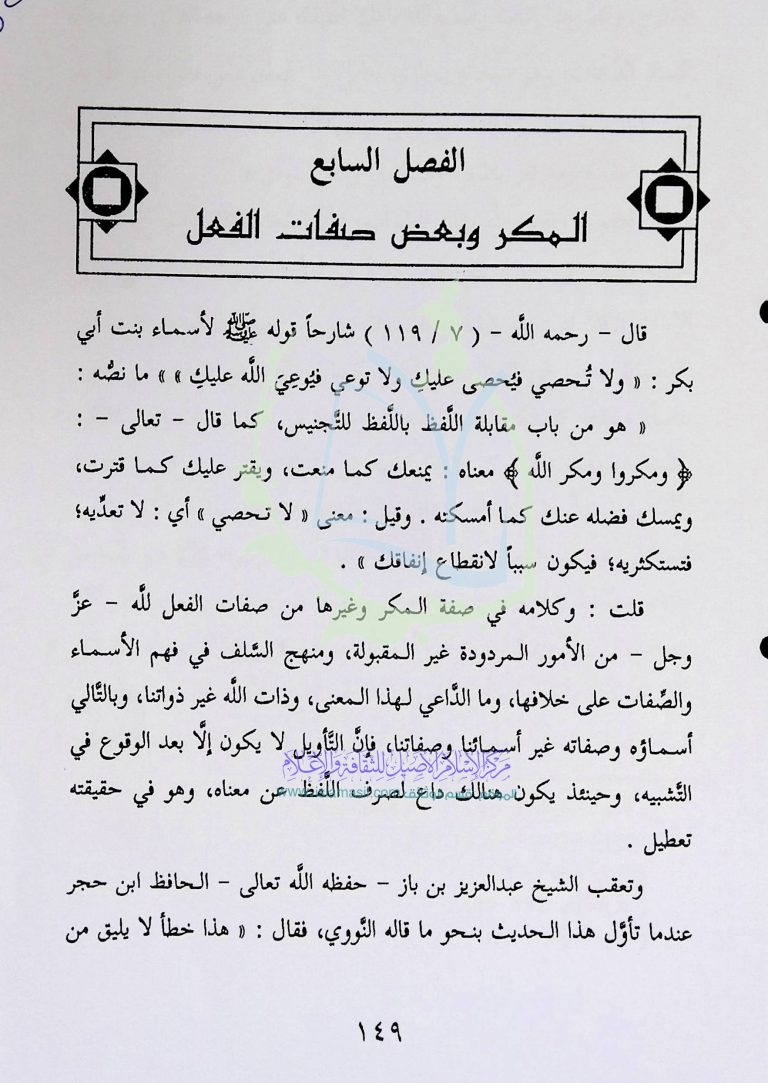 الفصل السابع
المكر وبعض صفات الفعل
قال – رحمه اللَّه – ( ٧ / ١١٩ ) شارحاً قوله ﷺ لأسماء بنت أبي
بكر : « ولا تُحصي فيُحصى عليكِ ولا توعي فيُوعِيَ اللَّه عليكِ » » ما نصُّه :
« هو من باب مقابلة اللَّفظ باللَّفظ للتَّجنيس، كما قال – تعالى – :
﴿ ومكروا ومكر اللَّه ﴾ معناه : يمنعك كما منعت، ويقتر عليك كما قترت،
ويمسك فضله عنك كما أمسكته . وقيل : معنى « لا تحصي » أي : لا تعدِّيه؛
فتستكثريه؛ فيكون سبباً لانقطاع إنفاقك » .
قلت : وكلامه في صفة المكر وغيرها من صفات الفعل للَّه – عزَّ
وجل – من الأمور المردودة غير المقبولة، ومنهج السَّلف في فهم الأسماء
والصِّفات على خلافها، وما الدَّاعي لهذا المعنى، وذات اللَّه غير ذواتنا، وبالتَّالي
أسماؤه وصفاته غير أسمائنا وصفاتنا، فإنَّ التَّأويل لا يكون إلَّا بعد الوقوع في
مركز الإسلام الأصيل للثقافة والإعلام
التَّشبيه، وحينئذ يكون هنالك داع لصرف اللَّفظ عن معناه، وهو في حقيقته
تعطيل .
وتعقب الشيخ عبدالعزيز بن باز – حفظه اللَّه تعالى – الحافظ ابن حجر
عندما تأوَّل هذا الحديث بنحو ما قاله النَّووي، فقال : « هذا خطأ لا يليق من
١٤٩